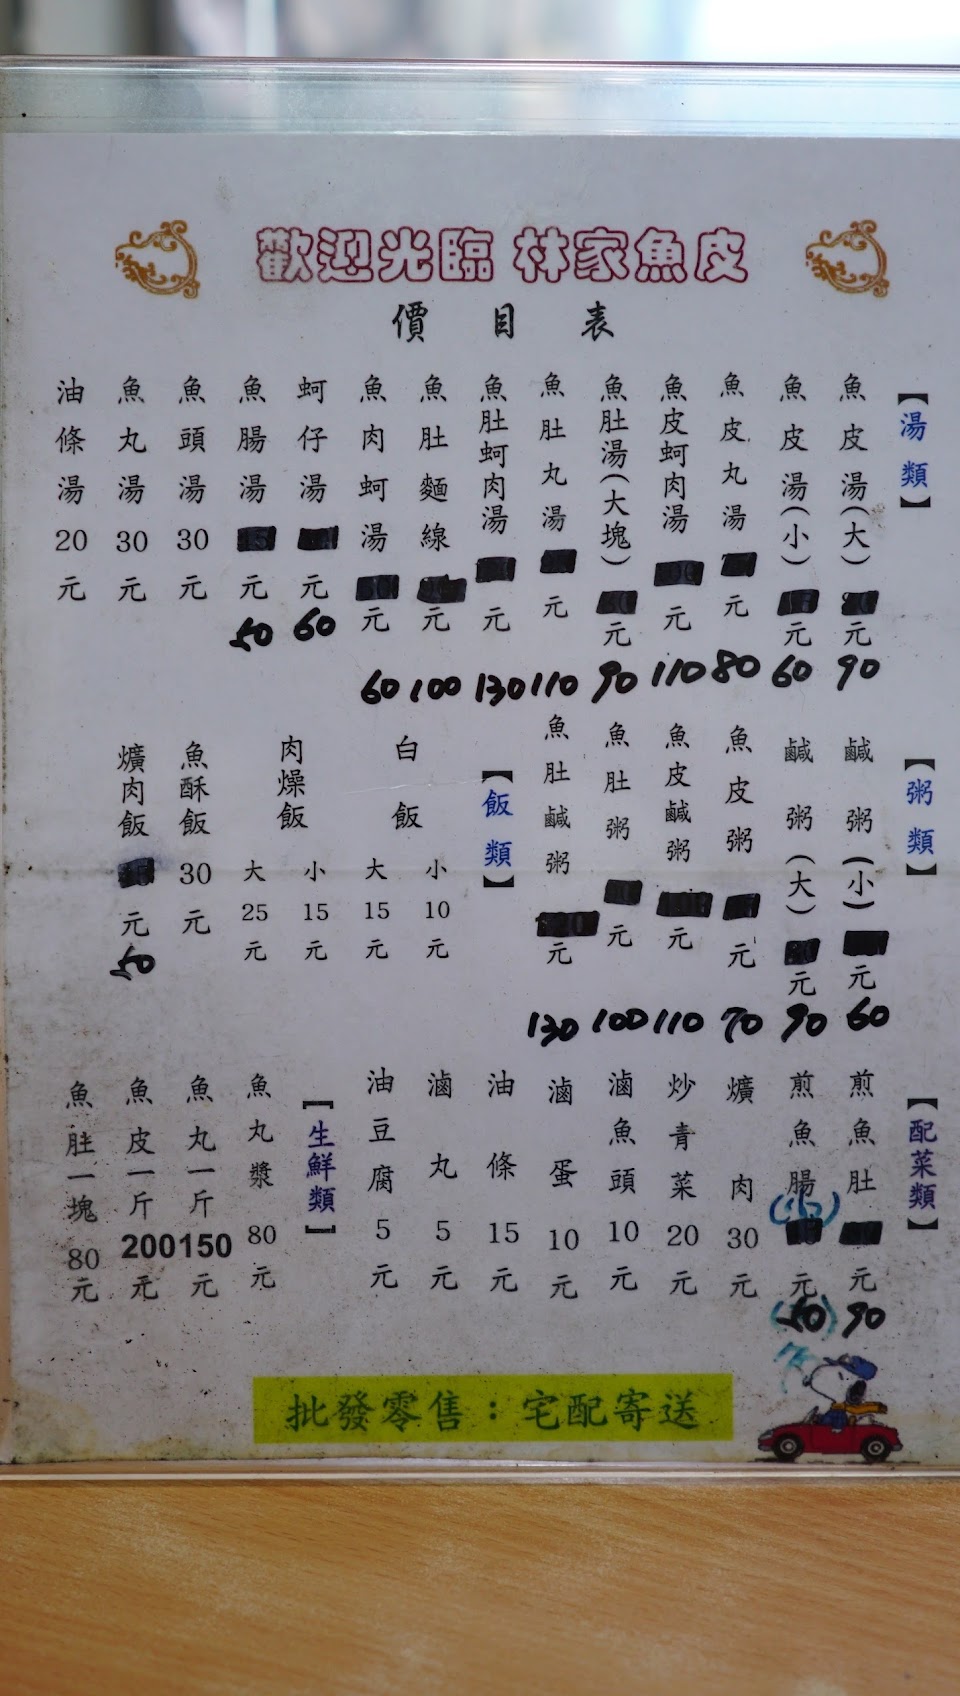 歡迎光臨 林家魚皮
價 目 表
【湯類】
魚皮湯(大) 元 90
魚皮湯(小) 元 60
魚皮丸湯 元 80
魚皮蚵肉湯 元 110
魚肚湯(大塊) 元 90
魚肚丸湯 元 110
魚肚蚵肉湯 元 130
魚肚麵線 元 100
魚肉蚵湯 元 60
蚵仔湯 元 60
魚腸湯 元 50
魚頭湯 30 元
魚丸湯 30 元
油條湯 20 元
【粥類】
鹹粥(小) 元 60
鹹粥(大) 元 90
魚皮粥 元 70
魚皮鹹粥 元 110
魚肚粥 元 100
魚肚鹹粥 元 130
【飯類】
白飯 小 10 元 大 15 元
肉燥飯 小 15 元 大 25 元
魚酥飯 30 元
爌肉飯 元 50
【配菜類】
煎魚肚 元 90
煎魚腸 (小) 元 (50)
爌肉 30 元
炒青菜 20 元
滷魚頭 10 元
滷蛋 10 元
油條 15 元
滷丸 5 元
油豆腐 5 元
【生鮮類】
魚丸漿 80 元
魚丸一斤 150 元
魚皮一斤 200 元
魚肚一塊 80 元
批發零售：宅配寄送